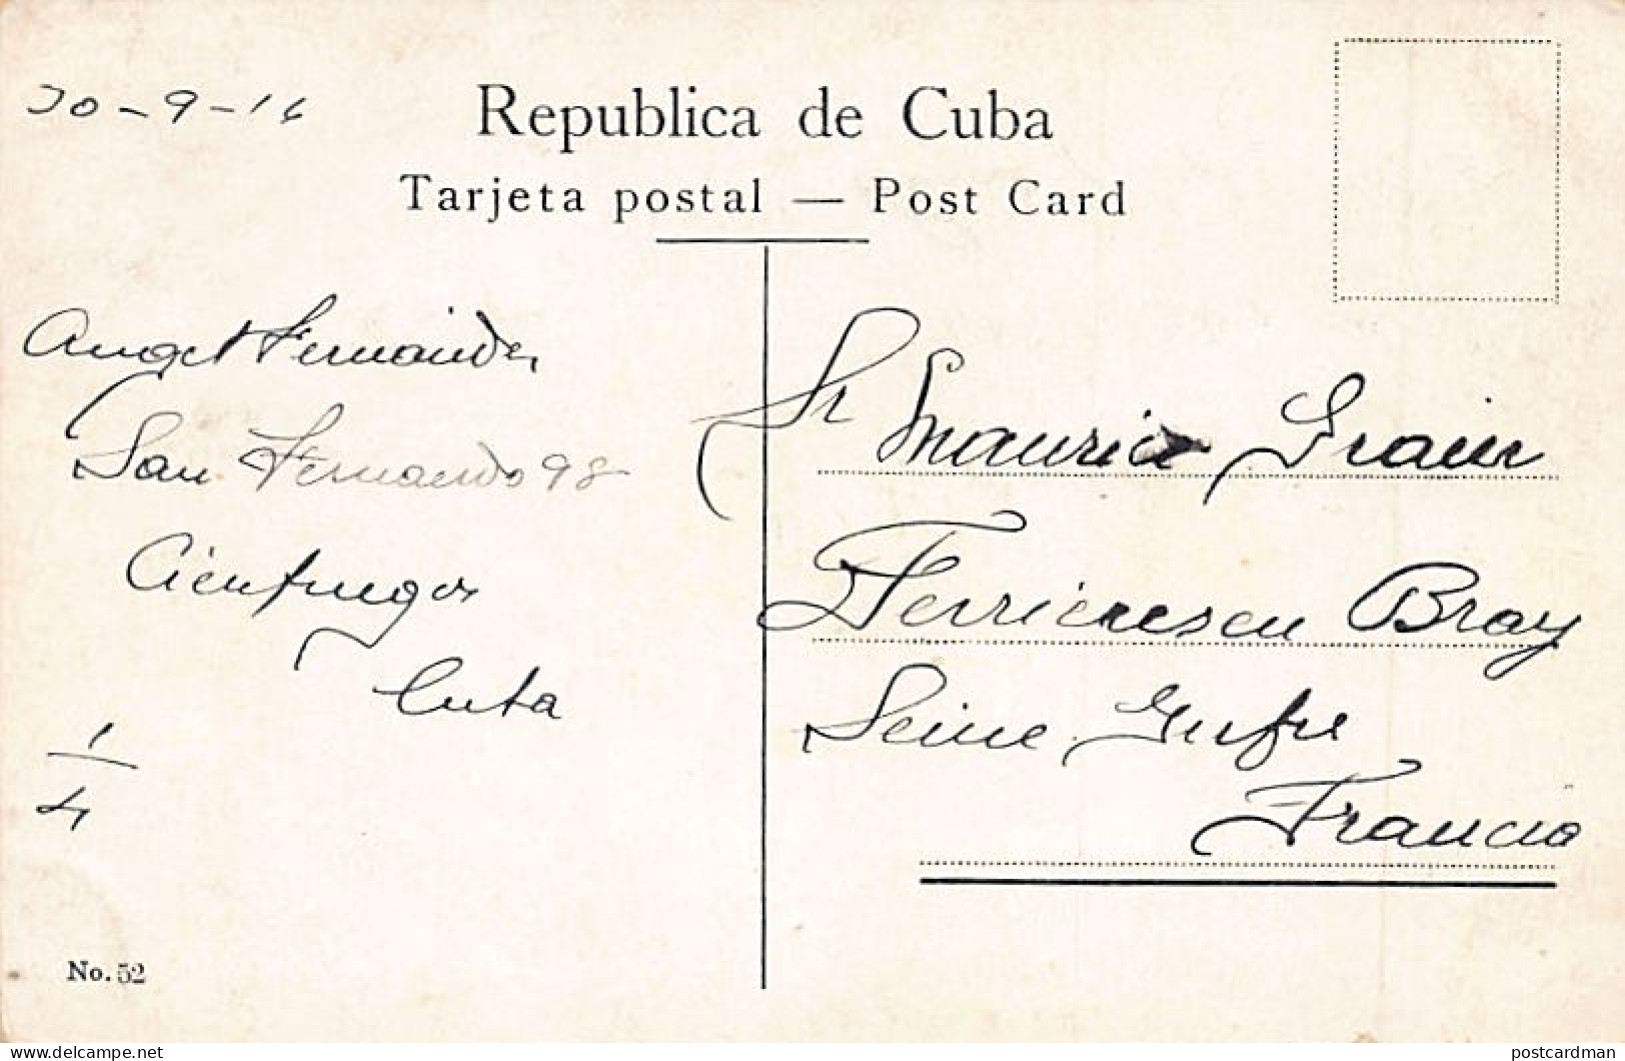 30-9-16
Republica de Cuba
Tarjeta postal — Post Card
Angel Fernández
San Fernando 98
Cienfuegos
Cuba
1/4
Sr Maurice
Ferrieres en Bray
Seine Infre
Francia
No. 52
delcampe.net
postcardman